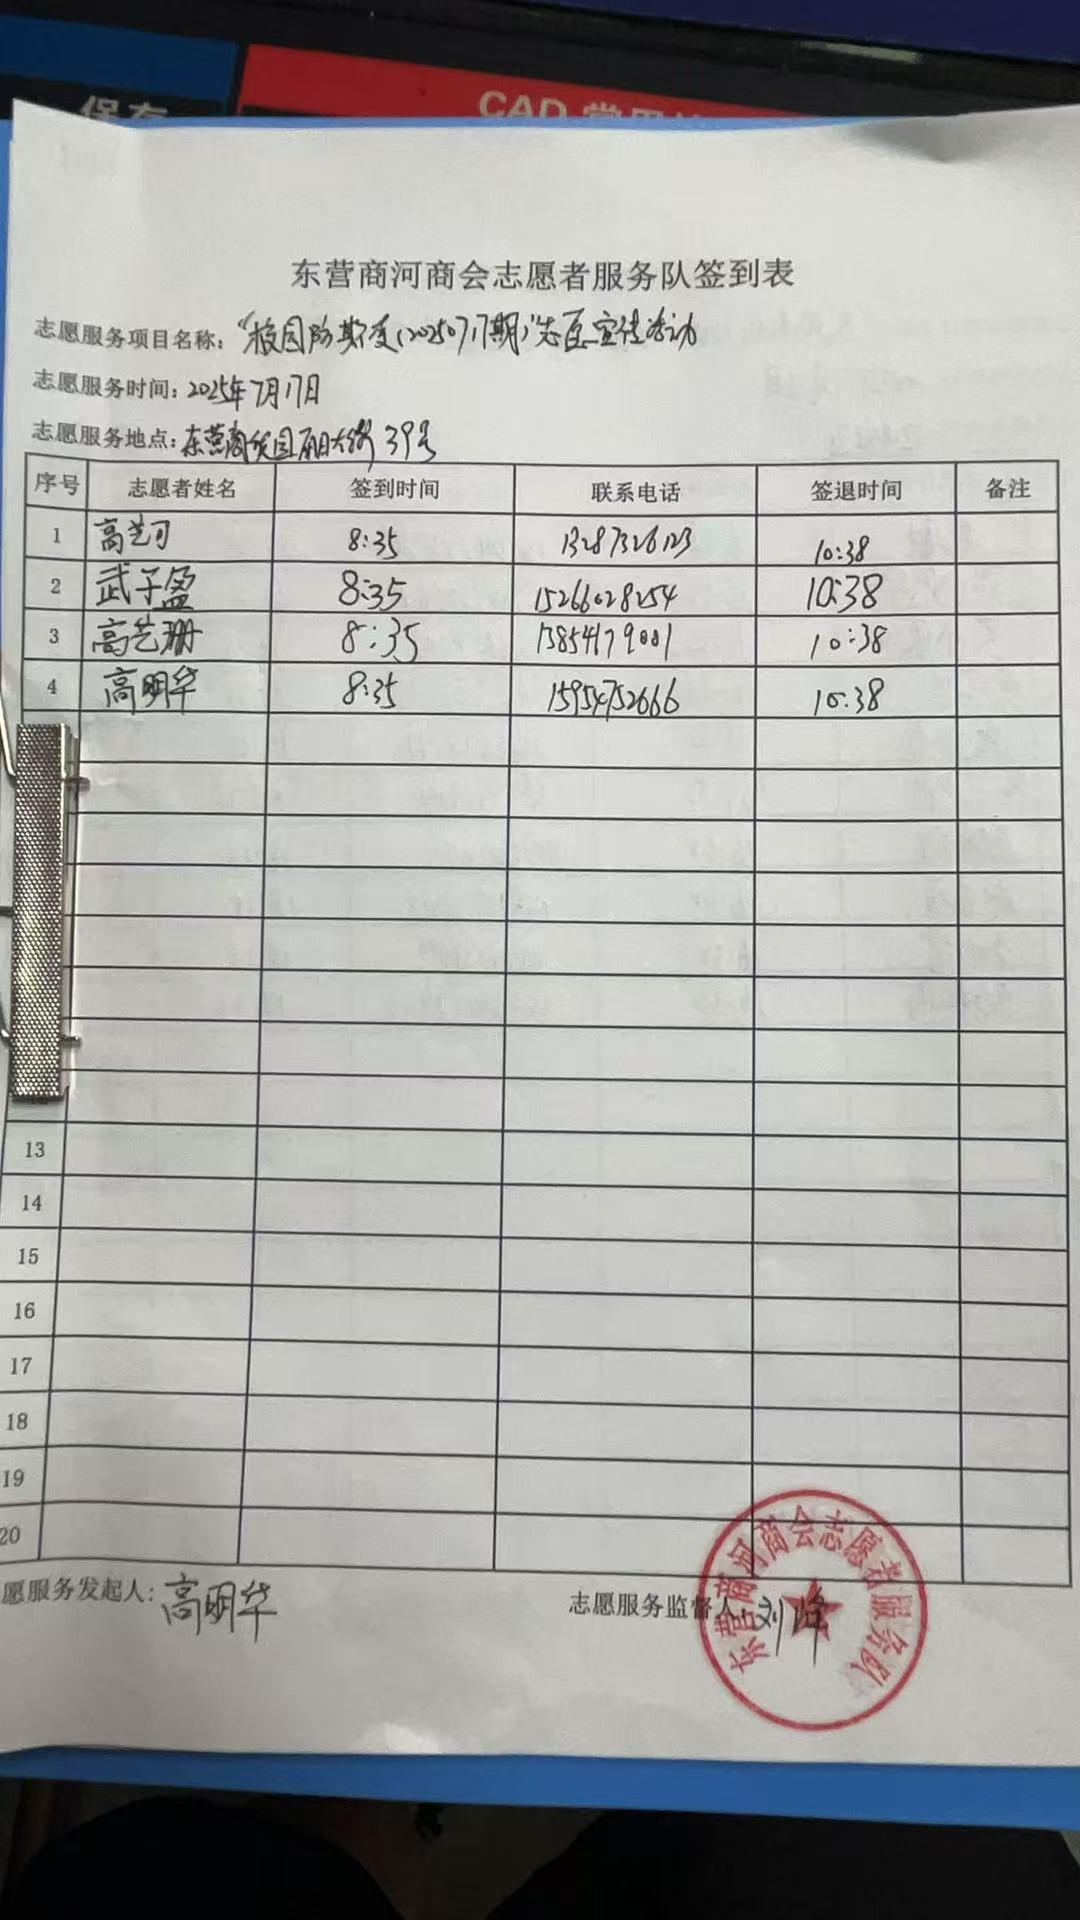 保存
CAD 常用
东营商河商会志愿者服务队签到表
志愿服务项目名称："校园防欺凌(20250717期)"志愿宣传活动
志愿服务时间：2025年7月17日
志愿服务地点：东营 39号
序号 志愿者姓名 签到时间 联系电话 签退时间 备注
1 高艺可 8:35 13287326123 10:38
2 武子盈 8:35 15266028254 10:38
3 高艺珊 8:35 13854179001 10:38
4 高明华 8:35 15954752666 10:38
13
14
15
16
17
18
19
20
愿服务发起人：高明华 志愿服务监督人：刘峰
东营商河商会志愿者服务队